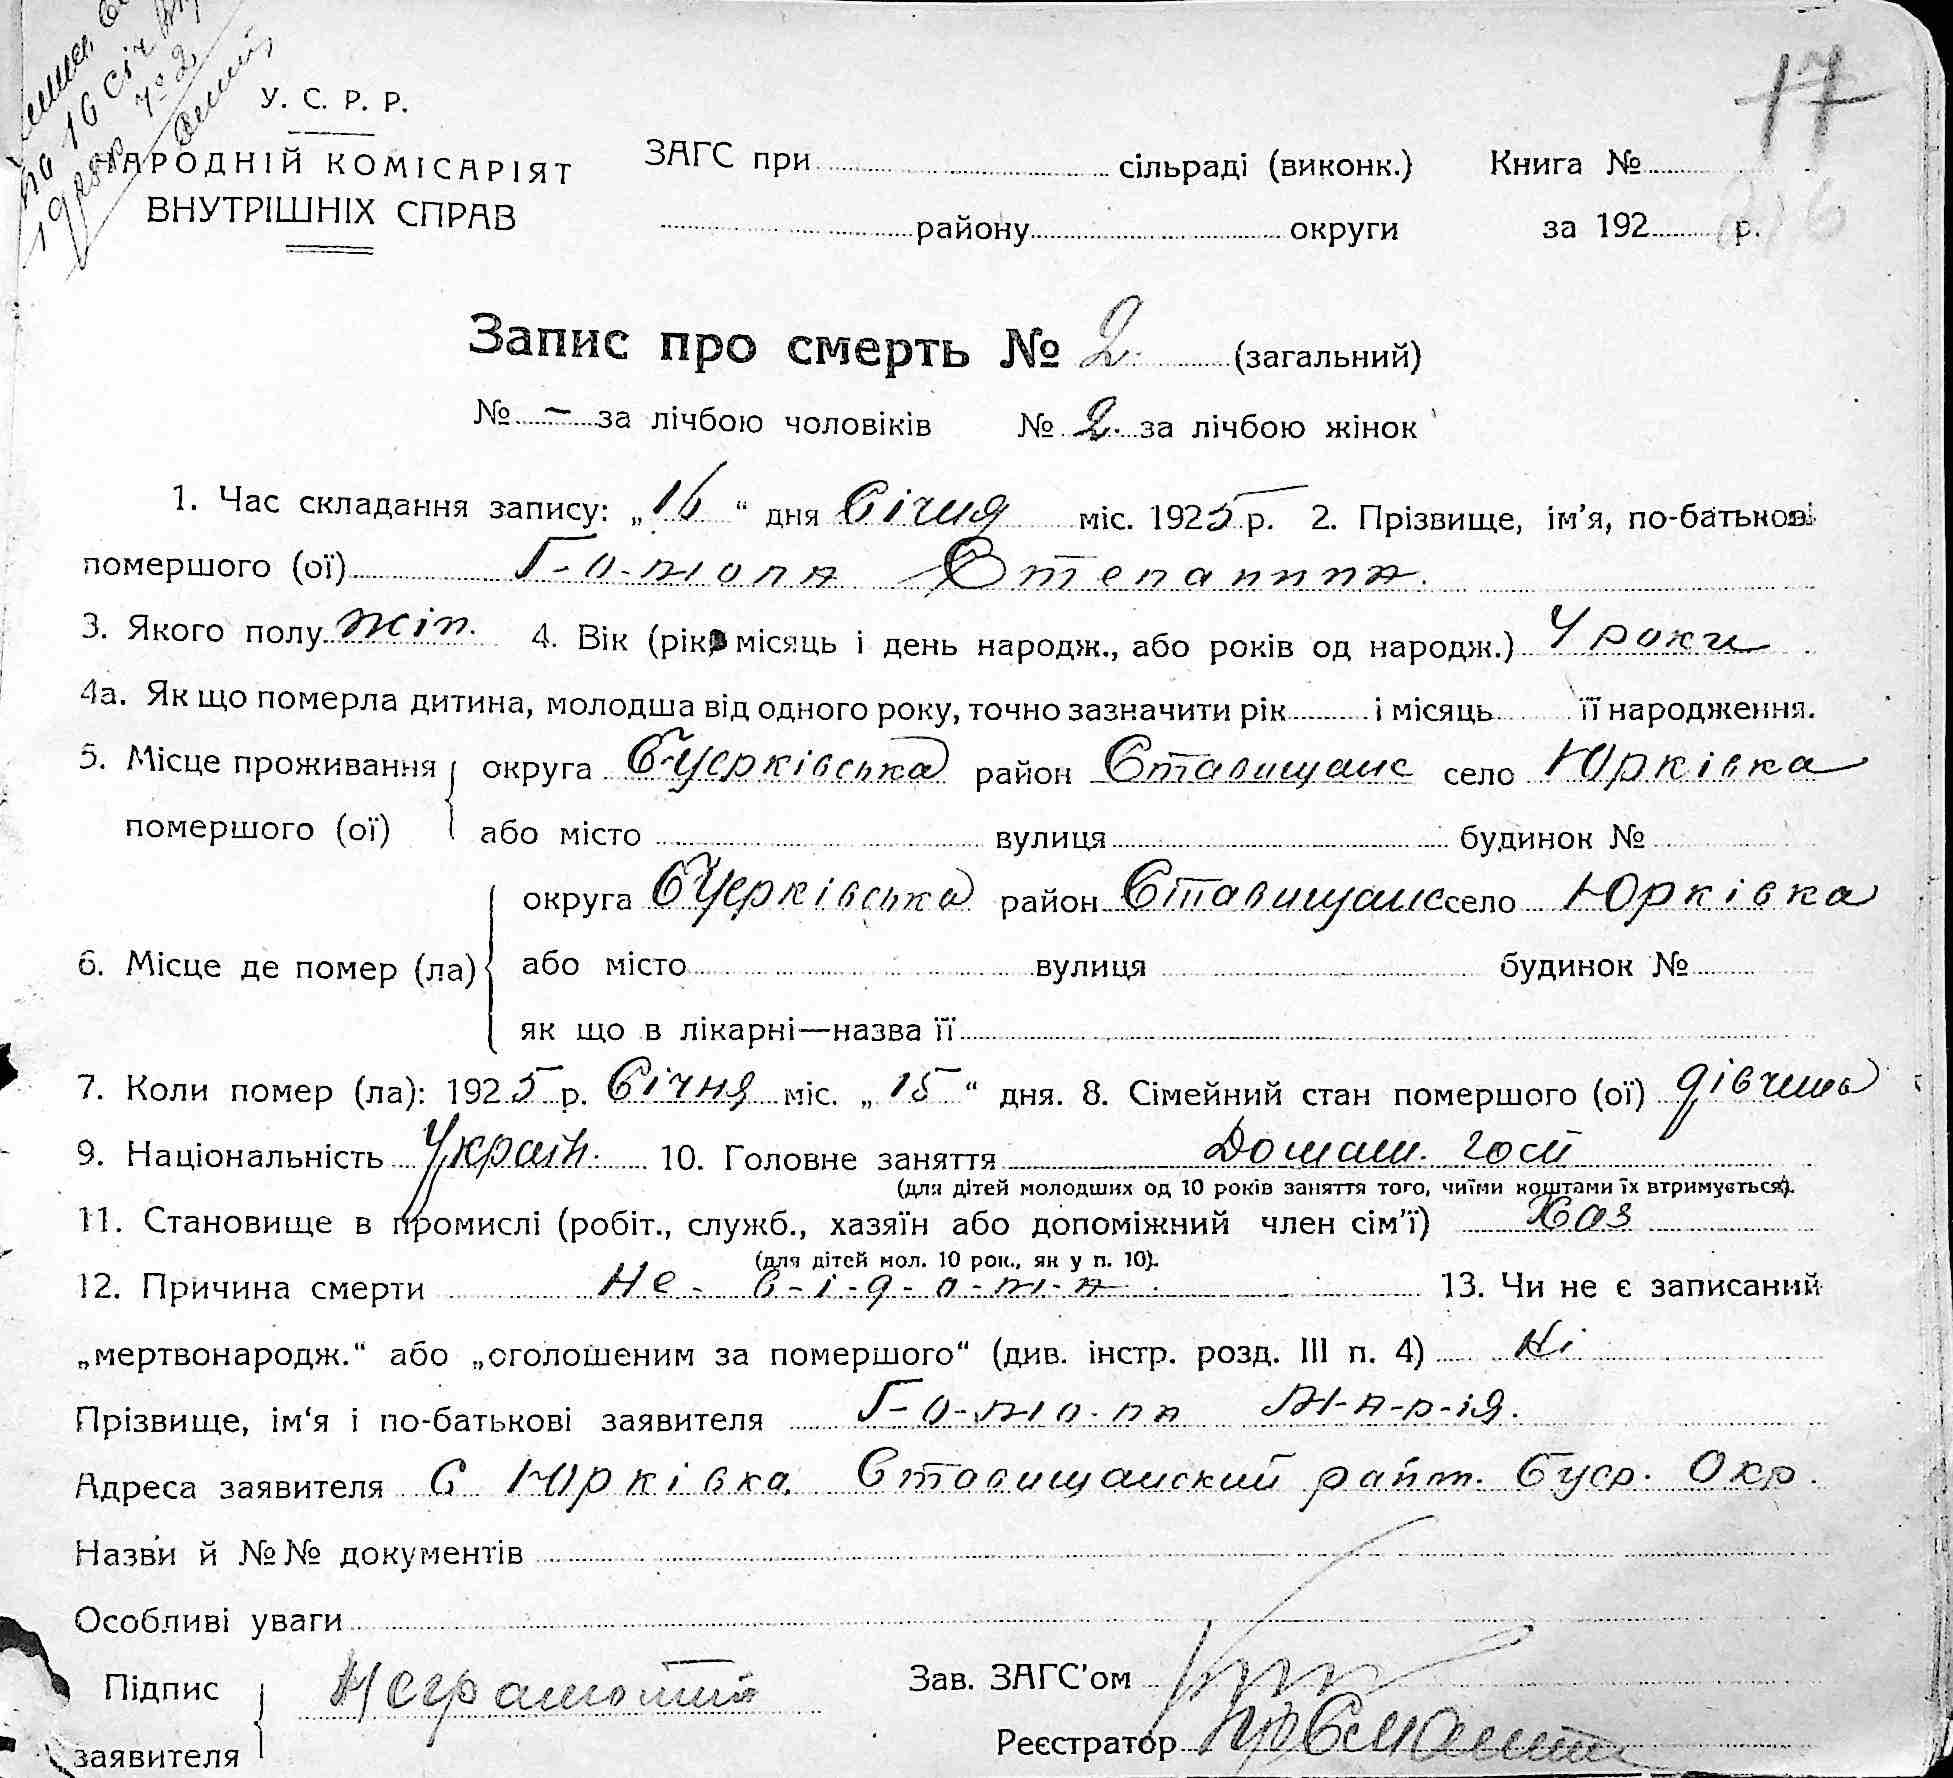 17
У. С. Р. Р.
НАРОДНІЙ КОМІСАРІЯТ
ВНУТРІШНІХ СПРАВ
ЗАГС при сільраді (виконк.) Книга №
району округи за 192 р.
Запис про смерть № 2 (загальний)
№ – за лічбою чоловіків № 2 за лічбою жінок
1. Час складання запису: „16" дня Січня міс. 1925 р. 2. Прізвище, ім'я, по-батькові
помершого (ої) Степанида.
3. Якого полу жін. 4. Вік (рік, місяць і день народж., або років од народж.) 4 роки
4а. Як що померла дитина, молодша від одного року, точно зазначити рік і місяць її народження.
5. Місце проживання округа Б-Церківська район Ставищанс село Юрківка
помершого (ої) або місто вулиця будинок №
округа БЦерківська район Ставищанс село Юрківка
6. Місце де помер (ла) або місто вулиця будинок №
як що в лікарні—назва її
7. Коли помер (ла): 1925 р. Січня міс. „15" дня. 8. Сімейний стан помершого (ої) дівчина
9. Національність Україн. 10. Головне заняття Домаш. госп
(для дітей молодших од 10 років заняття того, чиїми коштами їх втримується).
11. Становище в промислі (робіт., служб., хазяїн або допоміжний член сім'ї) Хаз
(для дітей мол. 10 рок., як у п. 10).
12. Причина смерти Не-в-і-д-о-м-а 13. Чи не є записаний
„мертвонародж." або „оголошеним за помершого" (див. інстр. розд. III п. 4) Ні
Прізвище, ім'я і по-батькові заявителя М-а-р-ія.
Адреса заявителя С Юрківка. Ставищанский район. БЦер. Окр.
Назви й №№ документів
Особливі уваги
Підпис Неграмотний Зав. ЗАГС'ом
заявителя Реєстратор